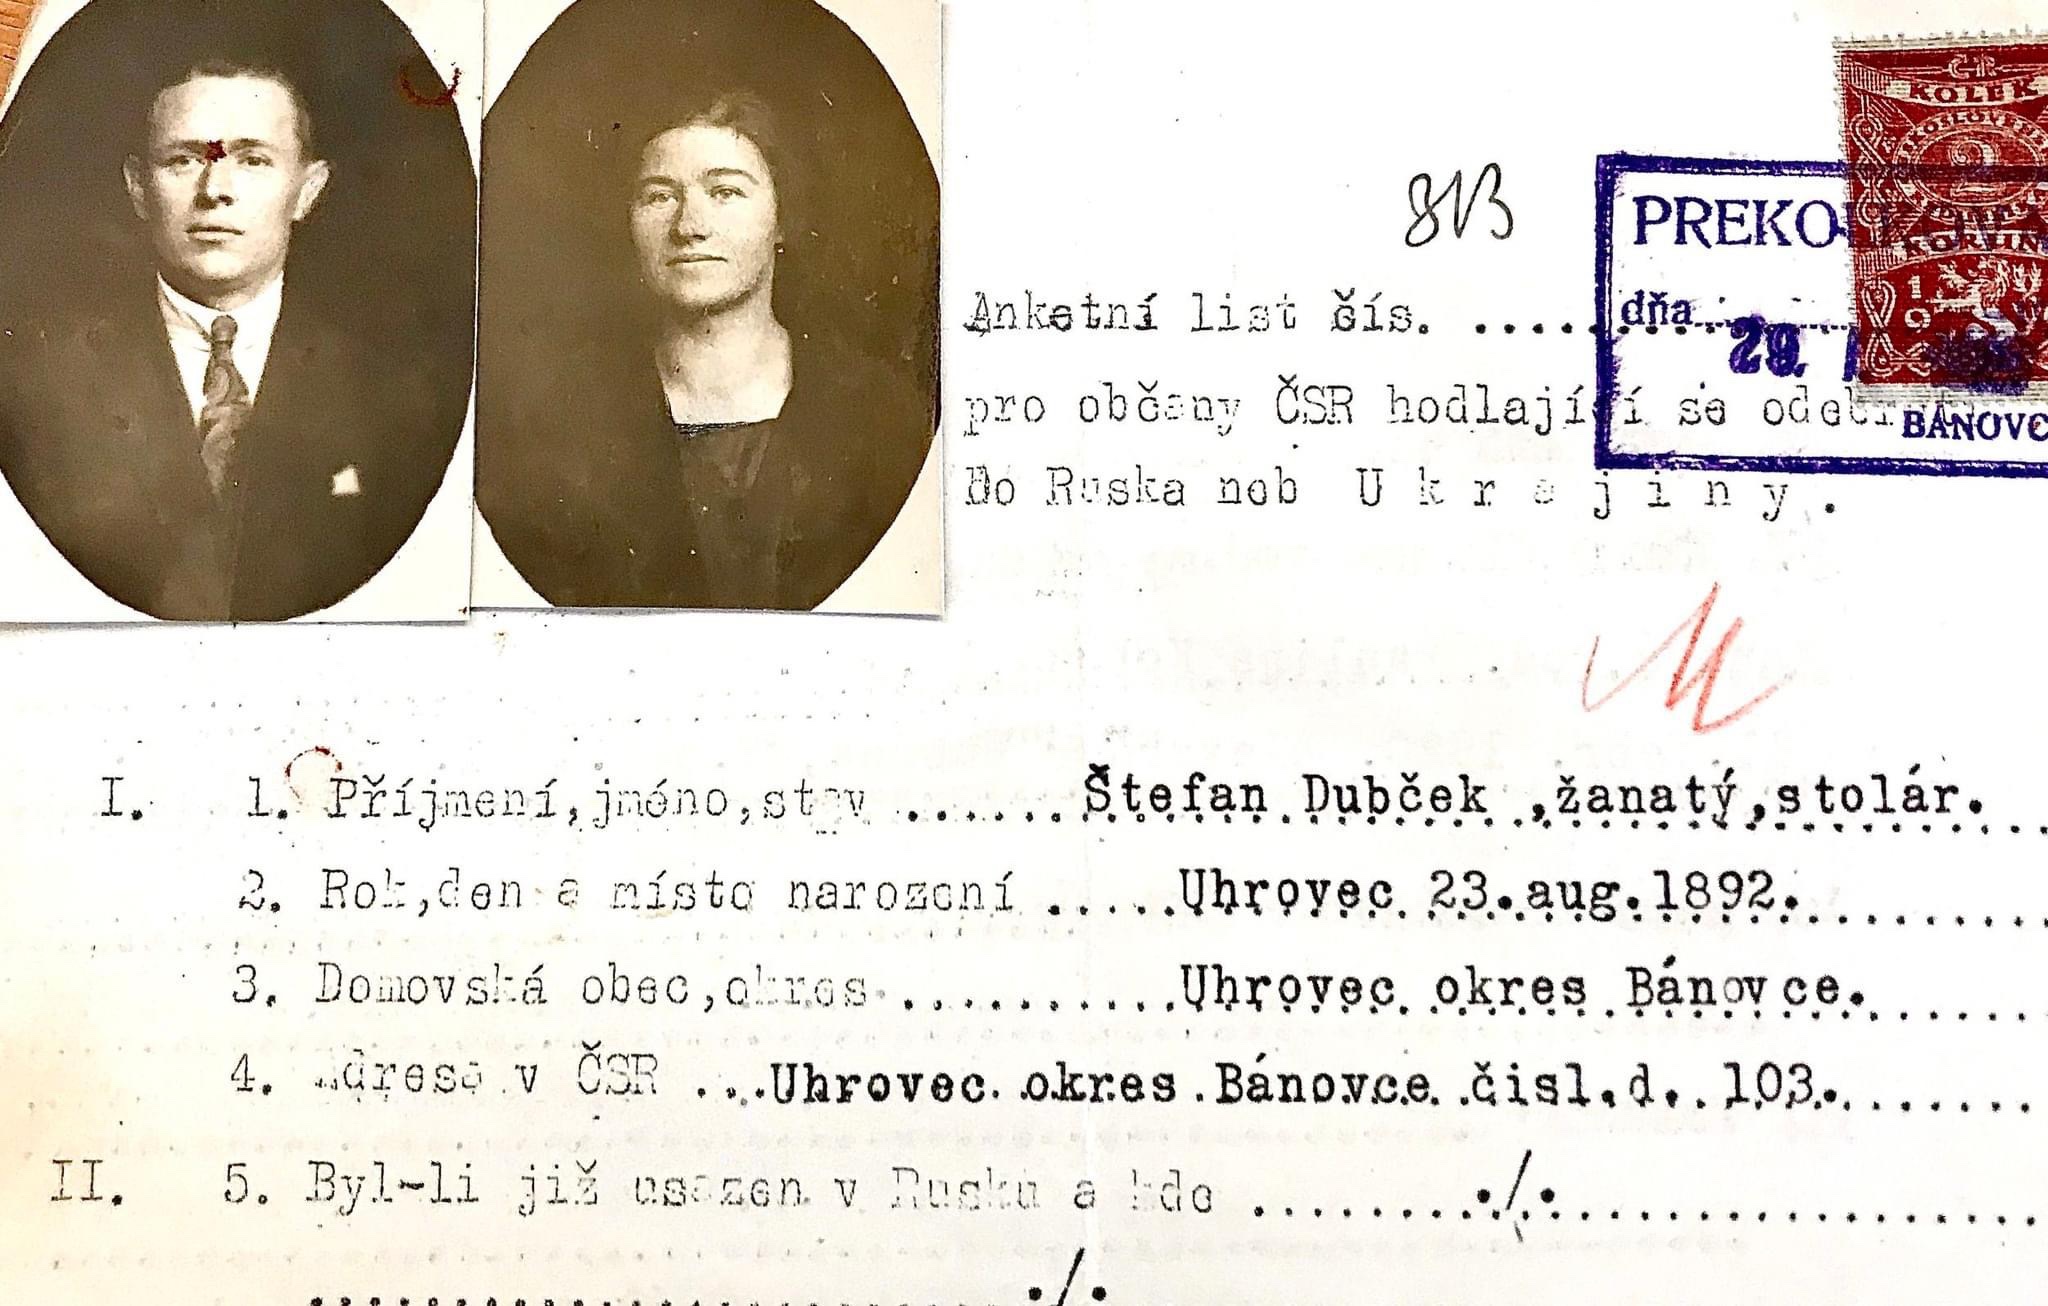 813
ČR
KOLEK
2
KORUN
19
PREKO
dňa
29.
BÁNOVC
Anketní list čís. ........
pro občany ČSR hodlající se odebrat
do Ruska neb U k r a j i n y .
I. 1. Příjmení,jméno,stav ......Štefan Dubček ,žanatý,stolár.
2. Rok,den a místo narození .....Uhrovec 23.aug.1892.
3. Domovská obec,okres ..........Uhrovec okres Bánovce.
4. Adresa v ČSR ...Uhrovec okres Bánovce čisl.d. 103.
II. 5. Byl-li již usazen v Rusku a kde ........./.
./.